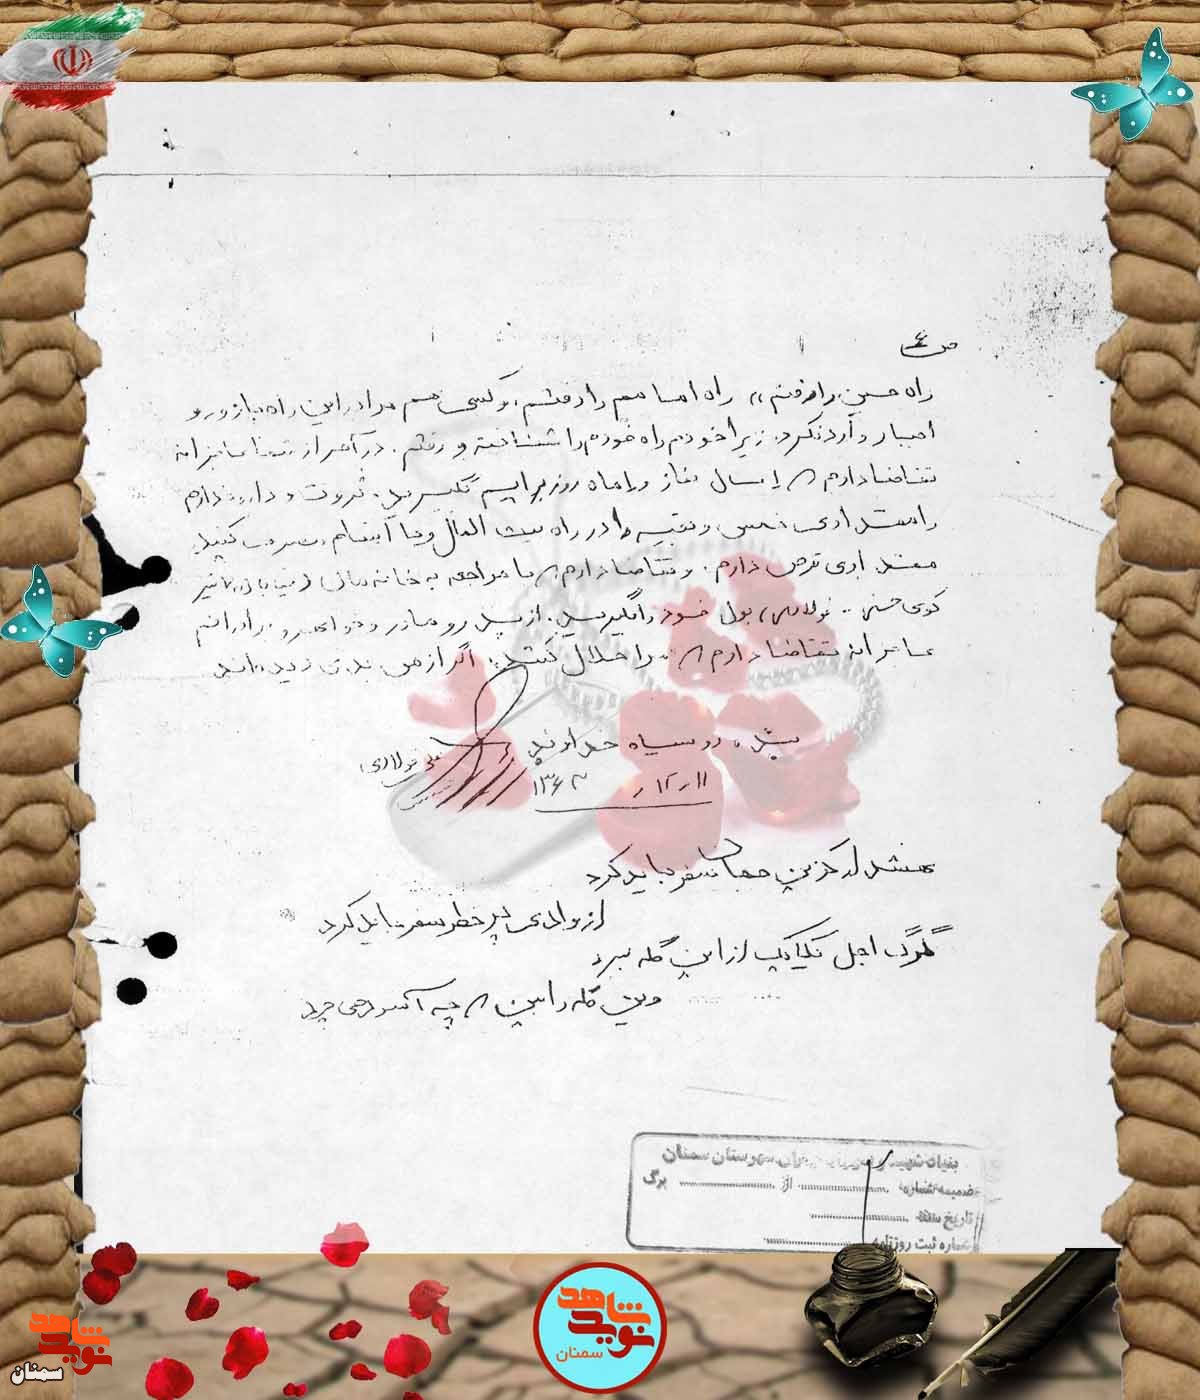 ص ۴
راه حسین را رفتم، راه امامم را رفتم، و کسی هم مرا در این راه با زور و
اجبار وارد نکرد. زیرا خودم راه خودم را شناختم و رفتم. در آخر از شما عاجزانه
تقاضا دارم که یکسال نماز و یکماه روزه برایم بگیرید. ثروت و داری ندارم
مقداری خمس و بقیه را در راه بیت المال و یا ایتام صرف کنید.
مقداری قرض دارم. و تقاضا دارم که با مراجعه به خانه مان
کوی پول خود را بگیرید. از پدر و مادر و خواهر و برادرانم
عاجزانه تقاضا دارم که مرا حلال کنند. اگر از من بدی دیده اند
بنده رو سیاه خداوند
۱۱ر۱۲ر۱۳۶۳
هشدار کزین جهان سفر باید کرد
از وادی پر خطر سفر باید کرد
گرگ اجل یکایک از این گله برد
وین گله را ببین که چه آسوده می چرد
بنیاد شهید شهرستان سمنان
ضمیمه شماره از برگ
تاریخ سند
شماره ثبت روزنامه
نوید شاهد
سمنان
نوید شاهد
سمنان